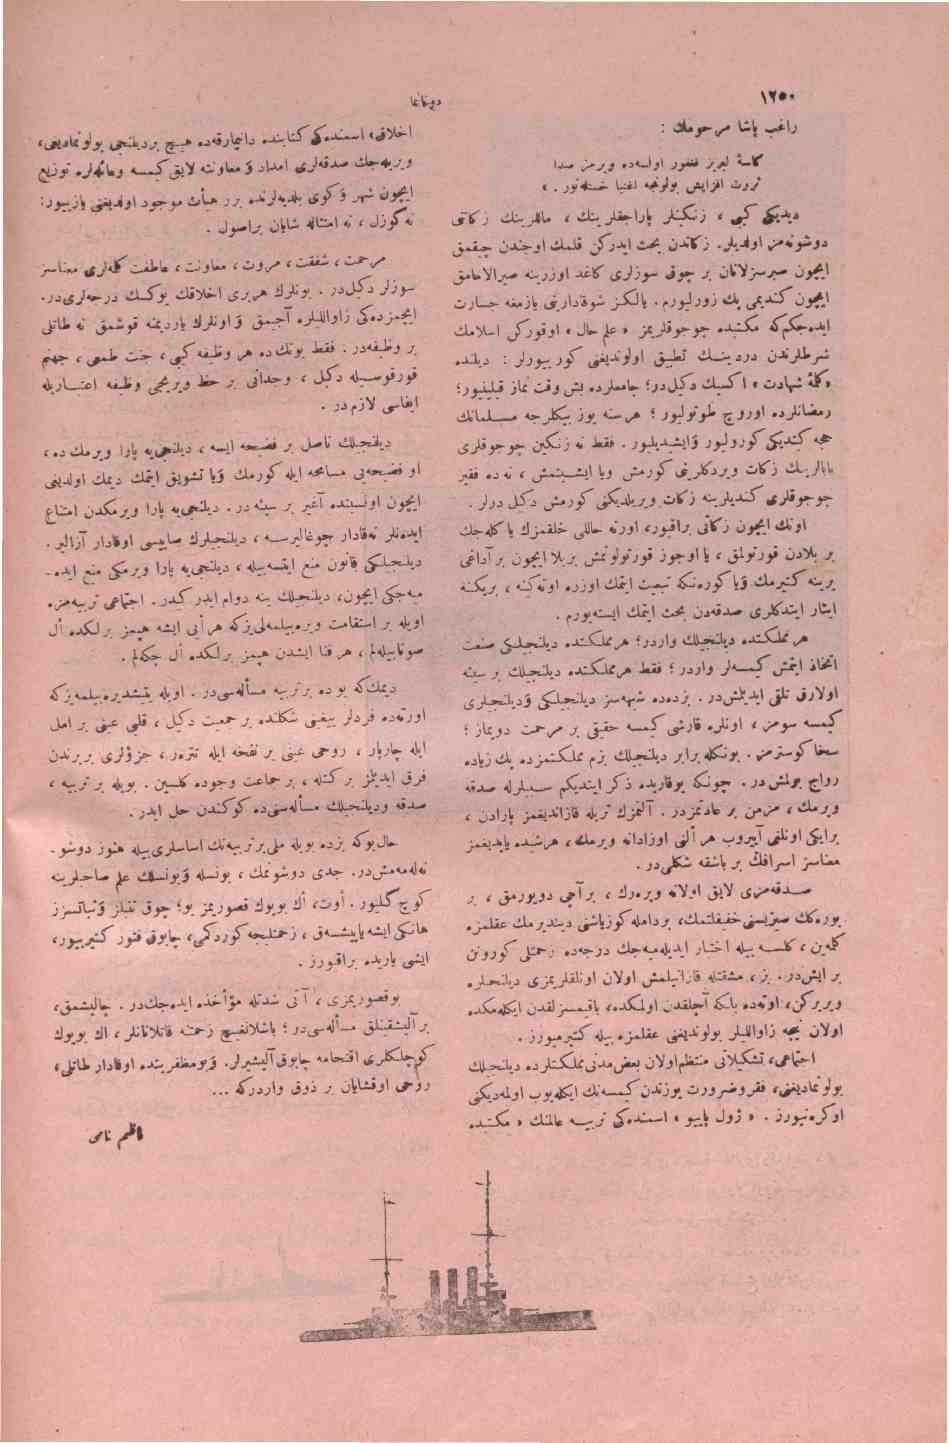 ١٢٥٠
دوننما
راغب پاشا مرحومك :
كاسهٔ لبريز فغفور اولسه‌ده ويرمز صدا
ثروت افزايش بولونجه اغنيا خسته‌نور . »
ديديكى كبى ، زنكينلر پاراجقلرينك ، ماللرينك زكاتنى
دوشونه‌مز اولديلر. زكاتدن بحث ايدركن قلمك اوجندن چيقمق
ايچون صبرسزلانان بر چوق سوزلرى كاغد اوزرينه صيرالامامق
ايچون كنديمى پك زورليورم. يالكز شوقدارينى يازمغه جسارت
ايده‌جكم كه مكتبده چوجوقلريمز « علم حال » اوقوركن اسلامك
شرطلرندن دردينك تطبيق اولونديغنى كورييورلر : ديلنده
«كلمهٔ شهادت » اكسيك دكيل‌در؛ جامعلرده بش وقت نماز قيلينيور؛
رمضانلرده اوروچ طوتوليور ؛ هر سنه يوز بيكلرجه مسلمانك
حجه كتديكى كورولور و ايشيديلير . فقط نه زنكين چوجوقلرى
بابالرينك زكات ويردكلرينى كورمش ويا ايشيتمش ، نه ده فقير
چوجوقلرى كنديلرينه زكات ويريلديكنى كورمش دكيل درلر .
اونك ايچون زكاتى براقيور، اورته حاللى خلقمزك يا كله‌جك
بر بلادن قورتولمق ، يا اوجوز قورتولونمش بر بلا ايچون بر آداغى
يرينه كتيرمك ويا كوره‌نكه تبعيت ايتمك اوزره اوته‌كنه ، بريكنه
ايثار ايتدكلرى صدقه‌دن بحث ايتمك ايسته‌يورم .
هر مملكتده ديلنجيلك واردر؛ هر مملكتده ديلنجيلكى صنعت
اتخاذ ايتمش كيمسه‌لر واردر ؛ فقط هر مملكتده ديلنجيلك بر سيئه
اولارق تلقى ايديلمش‌در . بزده‌ده شبهه‌سز ديلنجيلكى و ديلنجيلرى
كيمسه سومز ، اونلره قارشى كيمسه حقيقى بر مرحمت دويماز ؛
سخا كوسترمز . بونكله برابر ديلنجيلك بزم مملكتمزده پك زياده
رواج بولمش‌در . چونكه يوقاريده ذكر ايتديكم سببلرله صدقه
ويرمك ، مزمن بر عادتمزدر . آلنمزك تريله قازانديغمز پارادن ،
بر ايكى اونلغى آييروب هر آلنى اوزادانه ويرمك، هر شيده ياپديغمز
معناسز اسرافك بر باشقه شكلى‌در .
صدقه‌مزى لايق اولانه ويره‌رك ، بر آچى دويورمق ، بر
يوره‌كك صيزيسنى خفيفلتمك، بر دامله كوزياشنى ديندير مك عقلمزه
كلمه‌ين ، كلسه بيله اختيار ايديله‌ميه‌جك درجه‌ده زحمتلى كورونن
بر ايش‌در. بز ، مشقتله قازانيلمش اولان اونلقلريمزى ديلنجيلره
ويريركن، اوته‌ده بلكه آچلقدن اولمكده، باقيمسزلقدن ايكله‌مكده
اولان نيجه زواللیلر بولونديغنى عقلمزه بيله كتيرميورز .
اجتماعى، تشكيلاتى منتظم اولان بعض مدنى مملكتلرده ديلنجيلك
بولونماديغنى، فقر و ضرورت يوزندن كيمسه‌نك ايكله‌يوب اولمه‌ديكنى
اوكره‌نيورز . « ژول پايو » اسمنده‌كى تربيه عالمنك « مكتبده
اخلاق» اسمنده‌كى كتابنده دانيمارقه‌ده هيچ بر ديلنجى بولونماديغنى،
ويريله‌جك صدقه‌لرى امداد و معاونته لايق كيمسه و عائله‌لره توزيع
ايچون شهر و كوى بلديه‌لرنده برر هيأت موجود اولديغنى يازييور:
نه كوزل ، نه امتثاله شايان بر اصول .
مرحمت ، شفقت ، مروت ، معاونت ، عاطفت كله‌لرى معناسز
سوزلر دكيل‌در . بونلرك هربرى اخلاقك يوكسك درجه‌لرى‌در.
ايچمزده‌كى زواللیلره آجيمق و اونلرك يارديمنه قوشمق نه طاتلى
بر وظيفه‌در . فقط بونك ده هر وظيفه كبى ، جنت طمعى ، جهنم
قورقوسيله دكيل ، وجدانى بر حظ ويريجى وظيفه اعتباريله
ايفاسى لازم در .
ديلنجيلك ناصل بر فضيحه ايسه ، ديلنجى‌يه پارا ويرمك ده ،
او فضيحه‌يى مسامحه ايله كورمك ويا تشويق ايتمك ديمك اولديغى
ايچون اولسبنده آغير بر سيئه در . ديلنجى‌يه پارا ويرمكدن امتناع
ايده‌نلر نه‌قادار چوغاليرسه ، ديلنجيلرك صاييسى اوقادار آزالير .
ديلنجيلكى قانون منع ايتسه‌بيله ، ديلنجى‌يه پارا ويرمكى منع ايده‌-
ميه‌جكى ايچون، ديلنجيلك ينه دوام ايدر كيدر. اجتماعى تربيه‌مزه
اويله بر استقامت ويره‌بيلمه‌لى‌يزكه هر آيى ايشه هپمز بر لكده أل
صونابيله‌لم ، هر فنا ايشدن هپمز بر لكده أل چكه‌لم .
ديمك‌كه بو ده بر تربيه مسأله‌سى‌در . اويله يتيشديره‌بيلمه‌يزكه
اورته‌ده فردلر ييغينى شكلنده بر جمعيت دكيل ، قلبى عينى بر امل
ايله چارپار ، روحى عينى بر نفخه ايله تتره‌ر، جزؤلرى بربرندن
فرق ايديلمز بر كتله ، بر جماعت وجوده كلسين . بويله بر تربيه ،
صدقه و ديلنجيلك مسأله‌سنى‌ده كوكندن حل ايدر .
حال بوكه بزده بويله ملى بر تربيه‌نك اساسلرى بيله هنوز دوشو-
نه‌له‌مه‌مش‌در. جدى دوشونمك ، بونسله و بونسلك علم صاحبلرينه
كوچ كليور. أوت، أك بويوك قصوريمز بو؛ چوق تنبلز و ثباتسزز
هانكى ايشه ياپيشسه‌ق ، زحمتليجه كوردكمى، چابوق فتور كتيرييور،
ايشى يا‌ريده براقيورز .
بوقصوريمزى ، آتى شدتله مؤاخذه ايده‌جك‌در . چاليشمق،
بر آليشقينلق مسأله‌سى‌در ؛ باشلانغيچ زحمتنه قاتلانانلر ، اك بويوك
كوچلكلرى اقتحامه چابوق آليشيرلر. و بو مظفريتده اوقادار طاتلى،
روحى اوقشايان بر ذوق واردركه ...
كاظم نامى